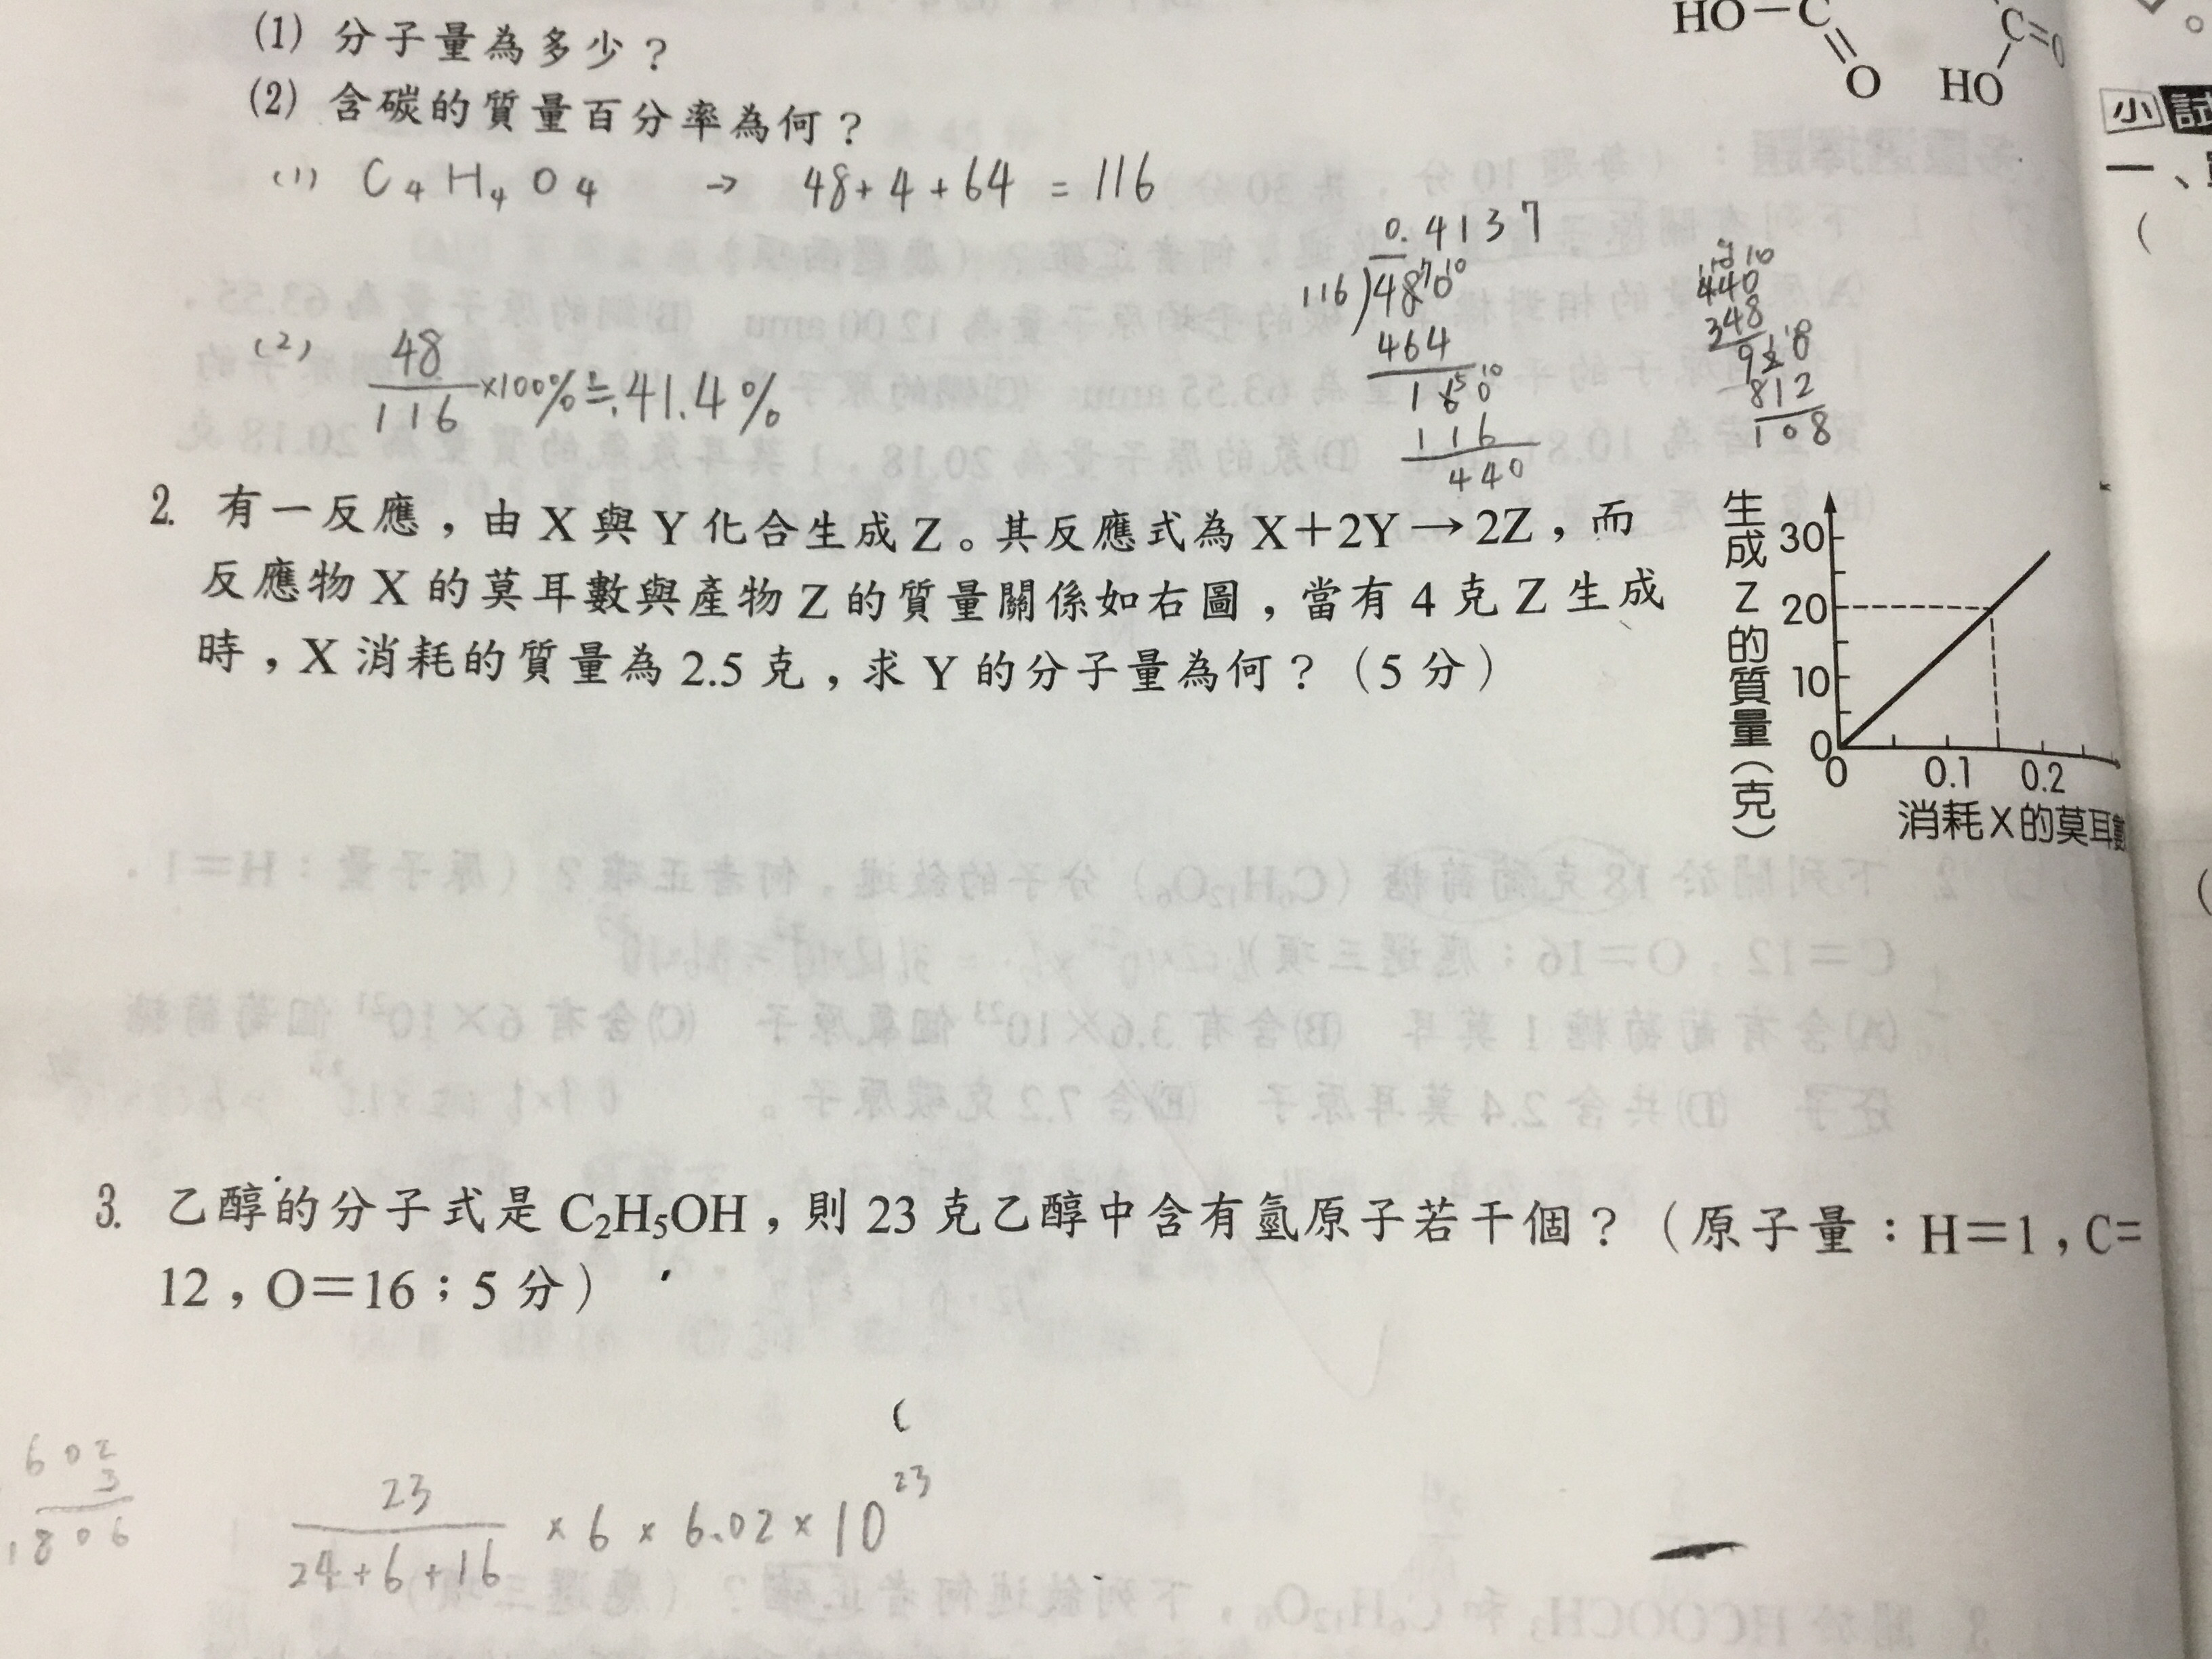 (1) 分子量為多少？
(2) 含碳的質量百分率為何？
HO－C
O
C=O
HO
(1) C4H4O4 → 48+4+64 = 116
(2) 48/116 ×100% ≒ 41.4%
0.4137
116)4870
464
160
116
440
440
348
920
812
108
2. 有一反應，由 X 與 Y 化合生成 Z。其反應式為 X＋2Y→2Z，而
反應物 X 的莫耳數與產物 Z 的質量關係如右圖，當有 4 克 Z 生成
時，X 消耗的質量為 2.5 克，求 Y 的分子量為何？（5 分）
生成Z的質量（克）
30
20
10
0
0 0.1 0.2
消耗X的莫耳數
3. 乙醇的分子式是 C₂H₅OH，則 23 克乙醇中含有氫原子若干個？（原子量：H＝1，C＝
12，O＝16；5 分）
602
3
1806
23/(24+6+16) × 6 × 6.02 × 10²³
小試
一、
(
(